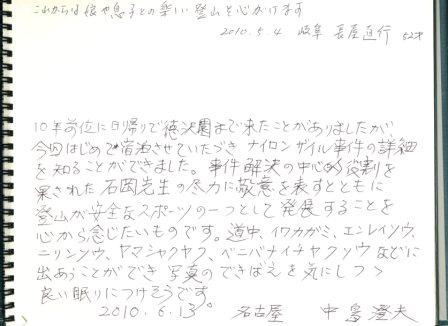 これからは娘や息子との楽しい登山を心がけます
2010.5.4 岐阜 長屋直行 52才
10年前位に日帰りで徳沢園まで来たことがありましたが、
今回はじめて宿泊させていただき ナイロンザイル事件の詳細
を知ることができました。事件解決の中心的役割を
果された石岡先生の尽力に敬意を表すとともに
登山が安全なスポーツの一つとして発展することを
心から念じたいものです。道中、イワカガミ、エンレイソウ、
ニリンソウ、ヤマシャクヤク、ベニバナイチヤクソウなどに
出あうことができ 写真のできばえを気にしつゝ
良い眠りにつけそうです。
2010.6.13. 名古屋 中島澄夫